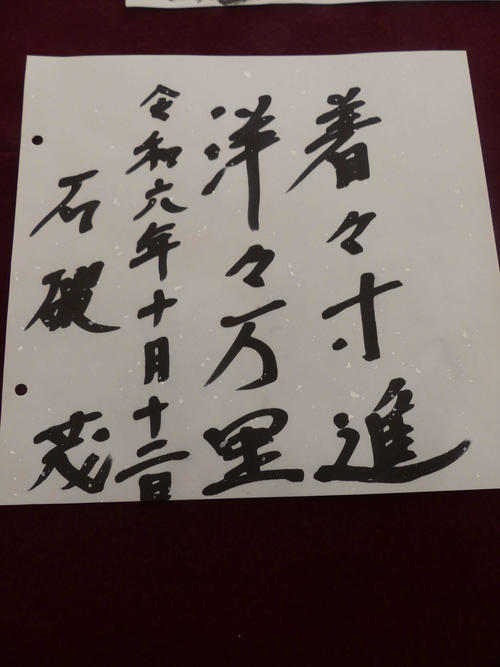 着々寸進
洋々万里
令和六年十月十二日
石破茂